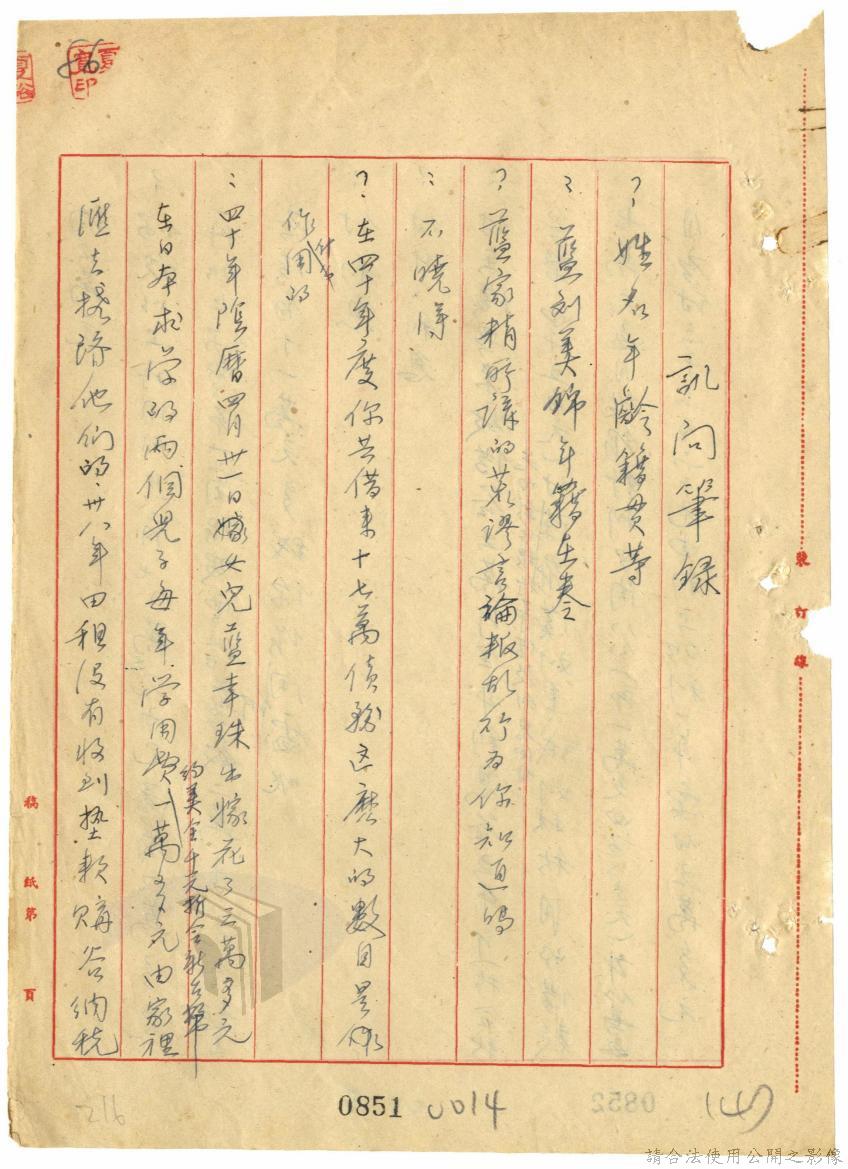 訊問筆錄
? 姓名年齡籍貫等
: 藍刘美錦年籍在卷
? 藍家精所講的荒謬言論報乱行为你知道嗎
: 不曉得
? 在四十年度你共借来十七萬债務这麽大的數目是做
什麽
作用的
: 四十年陰曆四月廿一日嫁女兒藍幸珠出嫁花了三萬多元
在日本求学的兩個兒子每年学用費一萬多元由家裡
約美金千元折合新台幣
匯去接济他们的,卅八年田租没有收到墊款購谷納税
裝訂線
稿紙第 頁
0851
0014
(14)
216
0852
86
請合法使用公開之影像